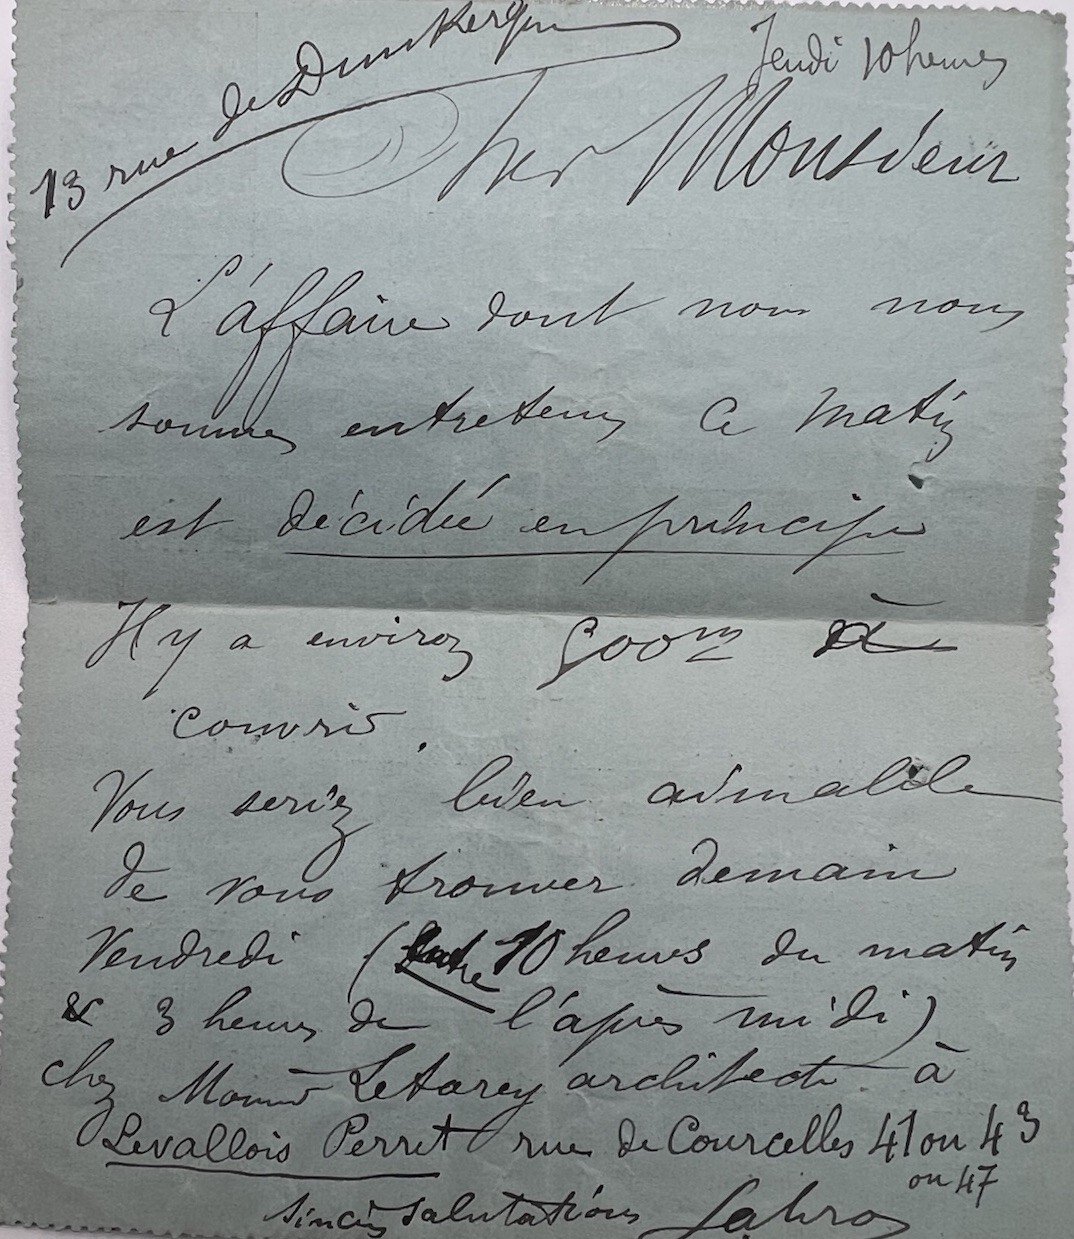 13 rue de Dunkerque
Jeudi 10 heures
Cher Monsieur
L'affaire dont nous nous
sommes entretenus ce matin
est décidée en principe
Il y a environ 900m à
couvrir.
Vous seriez bien aimable
de vous trouver demain
Vendredi (Entre 10 heures du matin
& 3 heures de l'après midi)
chez Letarey architecte à
Levallois Perret rue de Courcelles 41 ou 43
ou 47
sincères salutations